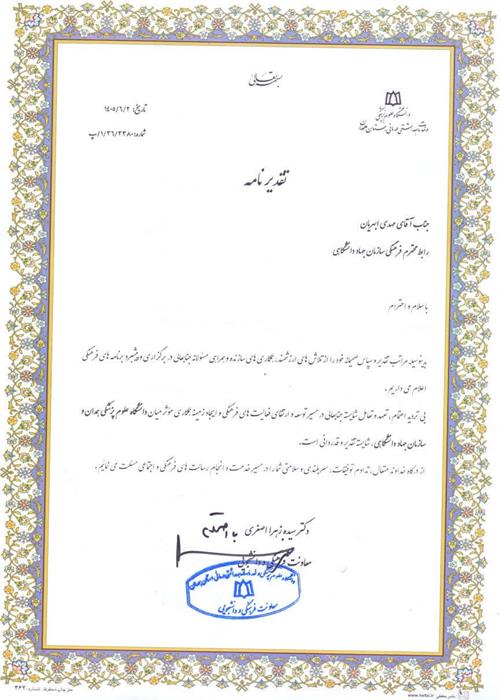 بسمه تعالی
دانشگاه علوم پزشکی
و خدمات بهداشتی درمانی استان همدان
تاریخ: ۱۴۰۵/۶/۲
شماره: ۱/۳۶/۳۳۸۰/پ
تقدیر نامه
جناب آقای مهدی ابهریان
رابط محترم فرهنگی سازمان جهاد دانشگاهی
باسلام و احترام
بدینوسیله مراتب تقدیر و سپاس صمیمانه خود را از تلاش های ارزشمند، همکاری های سازنده و همراهی مسئولانه جنابعالی در برگزاری و پیشبرد برنامه های فرهنگی
اعلام می داریم .
بی تردید اهتمام، تعهد و تعامل شایسته جنابعالی در مسیر توسعه و ارتقای فعالیت های فرهنگی و ایجاد زمینه همکاری مؤثر میان دانشگاه علوم پزشکی همدان و
سازمان جهاد دانشگاهی، شایسته تقدیر و قدردانی است.
از درگاه خداوند متعال، تداوم توفیقات، سربلندی و سلامتی شما را در مسیر خدمت و انجام رسالت های فرهنگی و اجتماعی مسئلت می نمائیم .
دکتر سیده زهرا اصغری
معاونت فرهنگی و دانشجویی
معاونت فرهنگی و دانشجویی
حق چاپ محفوظ . شماره: ۲۶۲
www.hefazi.ir